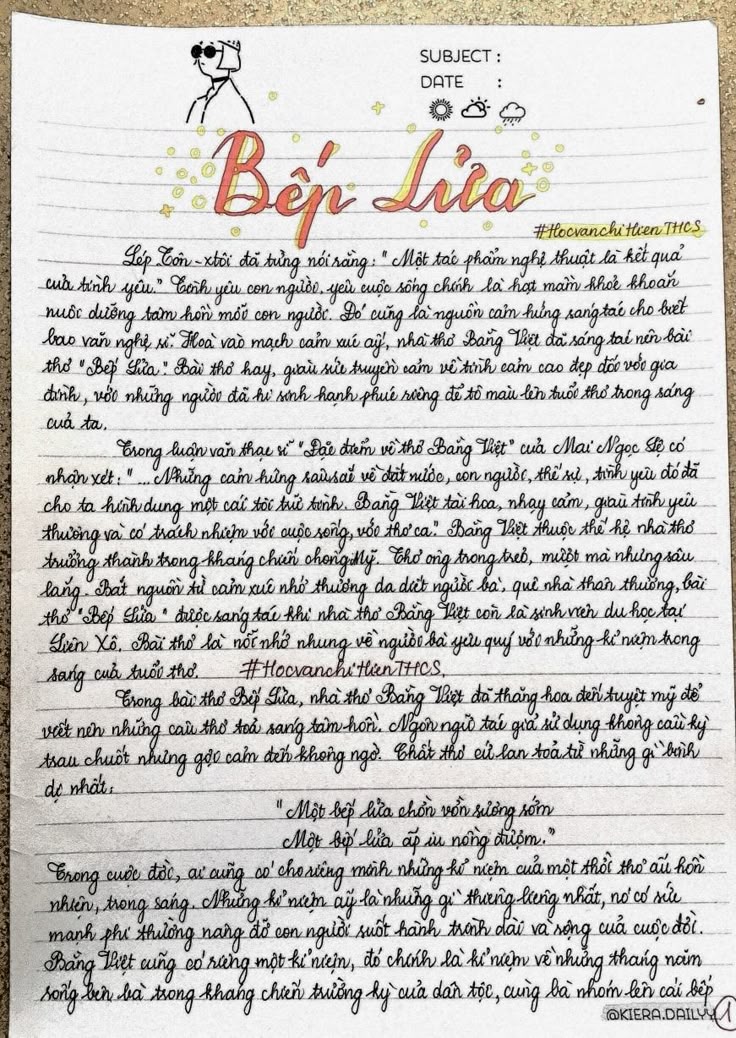 SUBJECT :
DATE :
Bếp Lửa
#HocvanchiHienTHCS
Lép Tôn-xtôi đã từng nói rằng: "Một tác phẩm nghệ thuật là kết quả
của tình yêu." Tình yêu con người, yêu cuộc sống chính là hạt mầm khoẻ khoắn
nuôi dưỡng tâm hồn mỗi con người. Đó cũng là nguồn cảm hứng sáng tác cho biết
bao văn nghệ sĩ. Hoà vào mạch cảm xúc ấy, nhà thơ Bằng Việt đã sáng tác nên bài
thơ "Bếp Lửa". Bài thơ hay, giàu sức truyền cảm về tình cảm cao đẹp đối với gia
đình, với những người đã hi sinh hạnh phúc riêng để tô màu lên tuổi thơ trong sáng
của ta.
Trong luận văn thạc sĩ "Đặc điểm về thơ Bằng Việt" của Mai Ngọc Lệ có
nhận xét: "... Những cảm hứng sâu sắc về đất nước, con người, thế sự, tình yêu đó đã
cho ta hình dung một cái tôi trữ tình. Bằng Việt tài hoa, nhạy cảm, giàu tình yêu
thương và có trách nhiệm với cuộc sống, với thơ ca." Bằng Việt thuộc thế hệ nhà thơ
trưởng thành trong kháng chiến chống Mỹ. Thơ ông trong trẻo, mượt mà nhưng sâu
lắng. Bắt nguồn từ cảm xúc nhớ thương da diết người bà, quê nhà thân thương, bài
thơ "Bếp Lửa" được sáng tác khi nhà thơ Bằng Việt còn là sinh viên du học tại
Liên Xô. Bài thơ là nỗi nhớ nhung về người bà yêu quý với những kỉ niệm trong
sáng của tuổi thơ. #HocvanchiHienTHCS.
Trong bài thơ Bếp Lửa, nhà thơ Bằng Việt đã thăng hoa đến tuyệt mỹ để
viết nên những câu thơ toả sáng tâm hồn. Ngôn ngữ tác giả sử dụng không cầu kỳ
trau chuốt nhưng gợi cảm đến không ngờ. Chất thơ cứ lan toả từ những gì bình
dị nhất:
"Một bếp lửa chờn vờn sương sớm
Một bếp lửa ấp iu nồng đượm."
Trong cuộc đời, ai cũng có cho riêng mình những kỉ niệm của một thời thơ ấu hồn
nhiên, trong sáng. Những kỉ niệm ấy là những gì thiêng liêng nhất, nó có sức
mạnh phi thường nâng đỡ con người suốt hành trình dài và rộng của cuộc đời.
Bằng Việt cũng có riêng một kỉ niệm, đó chính là kỉ niệm về những tháng năm
sống bên bà trong kháng chiến trường kỳ của dân tộc, cùng bà nhóm lên cái bếp
@KIERA.DAILYY 1